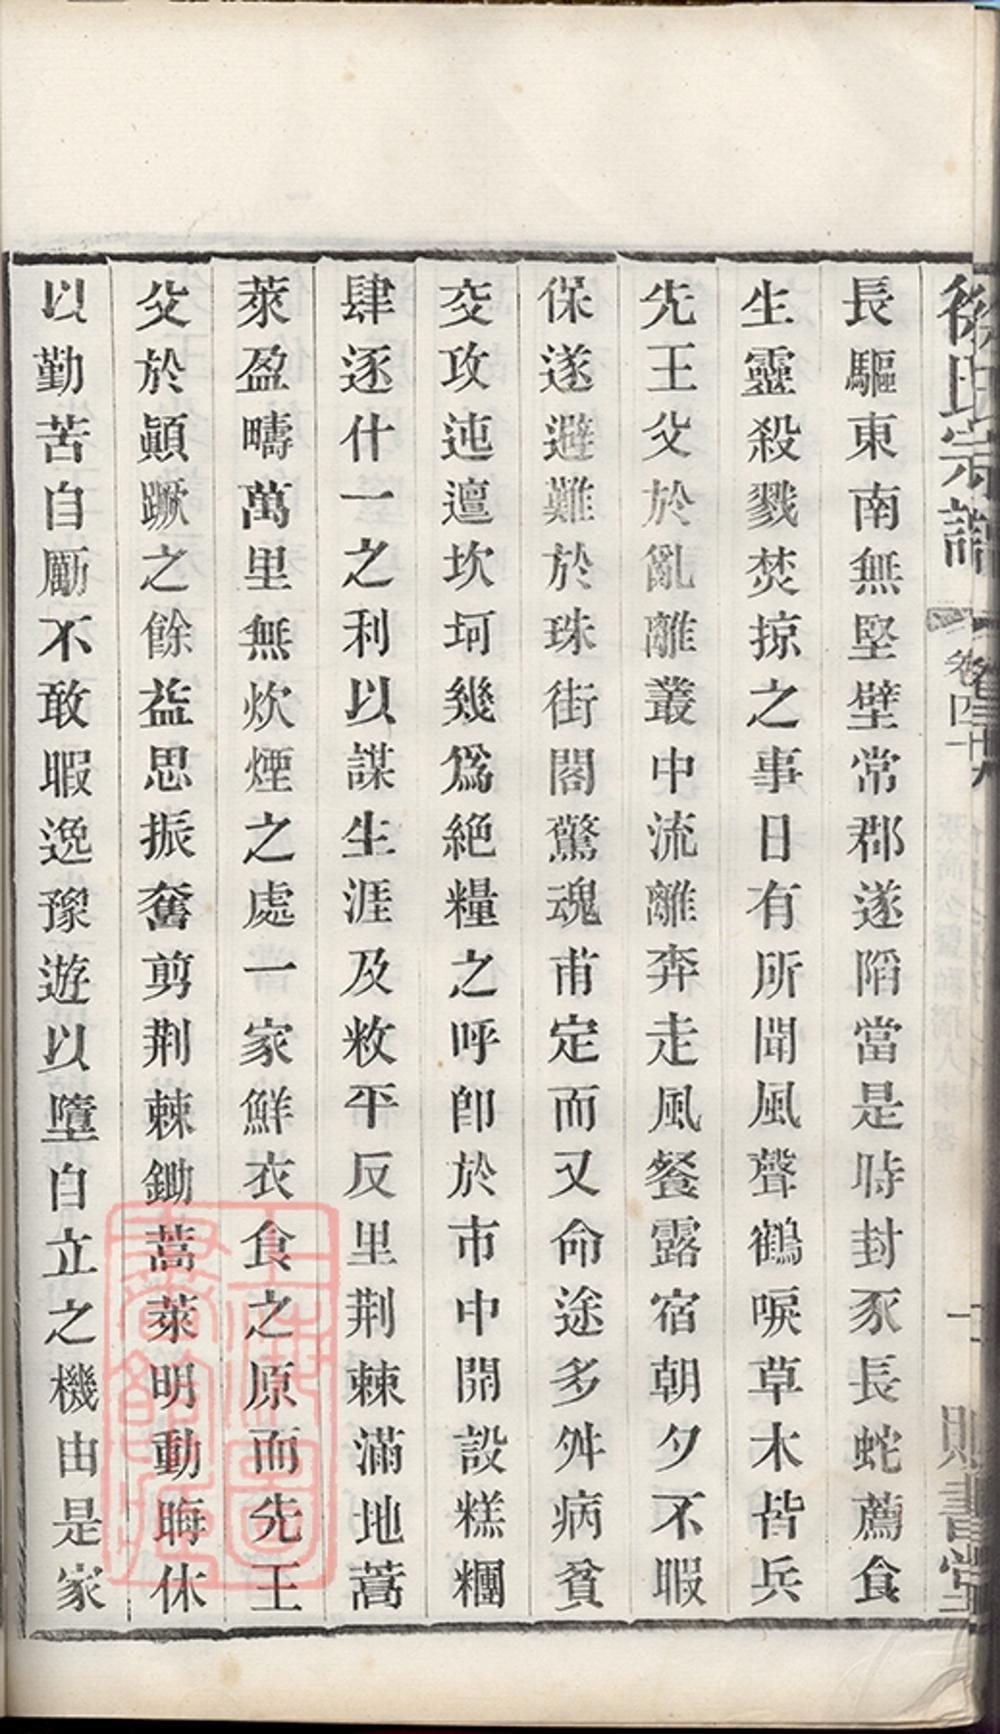 徐氏宗譜
卷四十八
長驅東南無堅壁常郡遂陷當是時封豕長蛇薦食
生靈殺戮焚掠之事日有所聞風聲鶴唳草木皆兵
先王父於亂離叢中流離奔走風餐露宿朝夕不暇
保遂避難於珠街閣驚魂甫定而又命途多舛病貧
交攻迍邅坎坷幾爲絕糧之呼卽於市中開設糕糰
肆逐什一之利以謀生涯及敉平反里荆棘滿地蒿
萊盈疇萬里無炊煙之處一家鮮衣食之原而先王
父於顚蹶之餘益思振奮剪荆棘鋤蒿萊明動晦休
以勤苦自勵不敢暇逸豫遊以墮自立之機由是家